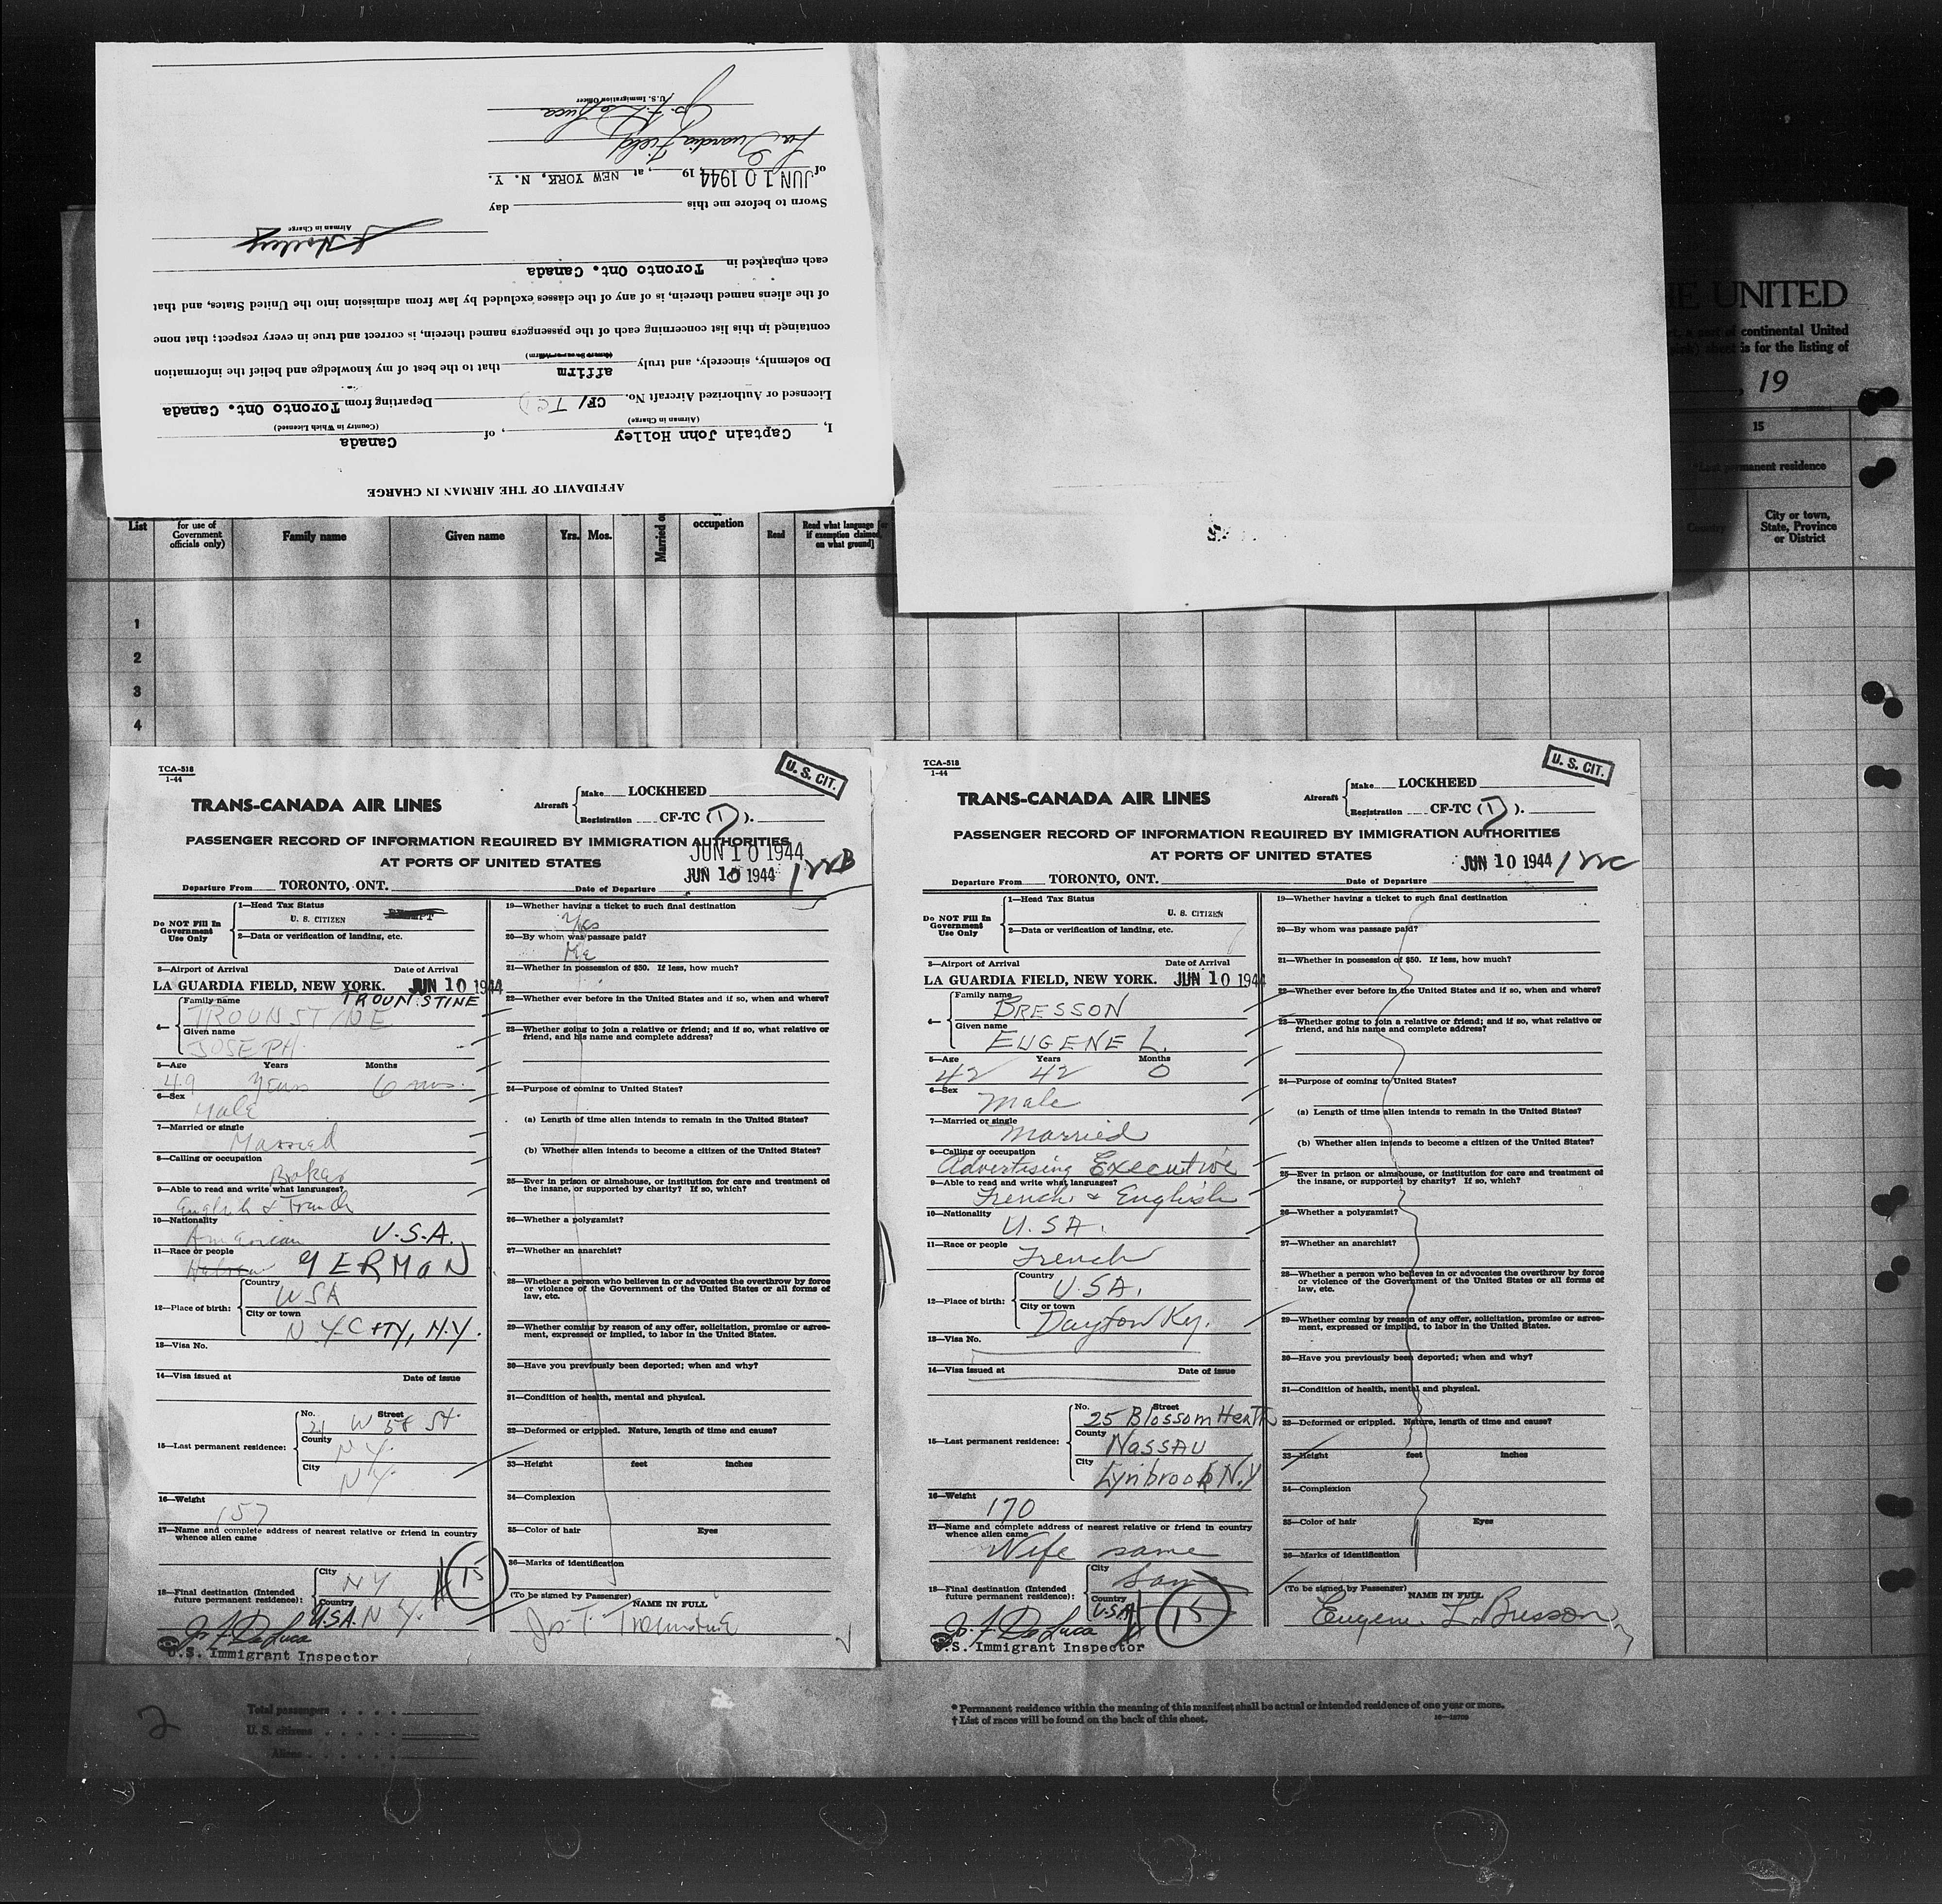 AFFIDAVIT OF THE AIRMAN IN CHARGE
I, Captain John Holley, of Canada
(Airman in Charge) (Country in Which Licensed)
Licensed or Authorized Aircraft No. CF/ TC Departing from Toronto Ont. Canada
Do solemnly, sincerely, and truly affirm that to the best of my knowledge and belief the information
contained in this list concerning each of the passengers named therein, is correct and true in every respect; that none
of the aliens named therein, is of any of the classes excluded by law from admission into the United States, and that
each embarked in Toronto Ont. Canada
J Holley
Airman in Charge
Sworn to before me this day
of JUN 10 1944, 19 , at NEW YORK, N. Y.
La Guardia Field
Jo. F. DeLuca
U.S. Immigration Officer
E UNITED
continental United
sheet is for the listing of
, 19
15
permanent residence
Country
City or town, State, Province or District
List
for use of Government officials only)
Family name
Given name
Yrs. Mos.
Married o
occupation
Read
Read what language [or if exemption claimed, on what ground]
1
2
3
4
TCA-518
1-44
U. S. CIT.
TRANS-CANADA AIR LINES
Aircraft Make LOCKHEED
Registration CF-TC (D).
PASSENGER RECORD OF INFORMATION REQUIRED BY IMMIGRATION AUTHORITIES
AT PORTS OF UNITED STATES
JUN 10 1944
JUN 10 1944
Departure From TORONTO, ONT. Date of Departure
Do NOT Fill In Government Use Only
1—Head Tax Status
U. S. CITIZEN
2—Data or verification of landing, etc.
3—Airport of Arrival Date of Arrival
LA GUARDIA FIELD, NEW YORK. JUN 10 1944
4— Family name TROUNSTINE
TROUNSTINE
Given name
JOSEPH
5—Age Years Months
49 Years 6 mos.
6—Sex
Male
7—Married or single
Married
8—Calling or occupation
Broker
9—Able to read and write what languages?
English & French
10—Nationality
American U.S.A.
11—Race or people
Hebrew GERMAN
12—Place of birth: Country
USA
City or town
N.Y. CITY, N.Y.
13—Visa No.
14—Visa issued at Date of issue
15—Last permanent residence: No. Street
21 W 58 St.
County
N.Y.
City
N.Y.
16—Weight
157
17—Name and complete address of nearest relative or friend in country
whence alien came
18—Final destination (Intended future permanent residence): City
N Y
Country
U.S.A. N Y.
15
Jo. F. DeLuca
U.S. Immigrant Inspector
19—Whether having a ticket to such final destination
Yes
20—By whom was passage paid?
Me
21—Whether in possession of $50. If less, how much?
22—Whether ever before in the United States and if so, when and where?
23—Whether going to join a relative or friend; and if so, what relative or
friend, and his name and complete address?
24—Purpose of coming to United States?
(a) Length of time alien intends to remain in the United States?
(b) Whether alien intends to become a citizen of the United States?
25—Ever in prison or almshouse, or institution for care and treatment of
the insane, or supported by charity? If so, which?
26—Whether a polygamist?
27—Whether an anarchist?
28—Whether a person who believes in or advocates the overthrow by force
or violence of the Government of the United States or all forms of
law, etc.
29—Whether coming by reason of any offer, solicitation, promise or agree-
ment, expressed or implied, to labor in the United States.
30—Have you previously been deported; when and why?
31—Condition of health, mental and physical.
32—Deformed or crippled. Nature, length of time and cause?
33—Height feet inches
34—Complexion
35—Color of hair Eyes
36—Marks of identification
(To be signed by Passenger) NAME IN FULL
Jos T. Trounstine
TCA-518
1-44
U. S. CIT.
TRANS-CANADA AIR LINES
Aircraft Make LOCKHEED
Registration CF-TC (D).
PASSENGER RECORD OF INFORMATION REQUIRED BY IMMIGRATION AUTHORITIES
AT PORTS OF UNITED STATES
JUN 10 1944
Departure From TORONTO, ONT. Date of Departure
Do NOT Fill In Government Use Only
1—Head Tax Status
U. S. CITIZEN
2—Data or verification of landing, etc.
3—Airport of Arrival Date of Arrival
LA GUARDIA FIELD, NEW YORK. JUN 10 1944
4— Family name
BRESSON
Given name
EUGENE L.
5—Age Years Months
42 42 0
6—Sex
Male
7—Married or single
Married
8—Calling or occupation
Advertising Executive
9—Able to read and write what languages?
French & English
10—Nationality
U.SA.
11—Race or people
French
12—Place of birth: Country
U.S.A.
City or town
Dayton Ky.
13—Visa No.
14—Visa issued at Date of issue
15—Last permanent residence: No. Street
25 Blossom Heath
County
Nassau
City
Lynbrook N.Y
16—Weight
170
17—Name and complete address of nearest relative or friend in country
whence alien came
Wife same
18—Final destination (Intended future permanent residence): City
Same
Country
U.S.A.
15
Jo. F. DeLuca
U.S. Immigrant Inspector
19—Whether having a ticket to such final destination
20—By whom was passage paid?
21—Whether in possession of $50. If less, how much?
22—Whether ever before in the United States and if so, when and where?
23—Whether going to join a relative or friend; and if so, what relative or
friend, and his name and complete address?
24—Purpose of coming to United States?
(a) Length of time alien intends to remain in the United States?
(b) Whether alien intends to become a citizen of the United States?
25—Ever in prison or almshouse, or institution for care and treatment of
the insane, or supported by charity? If so, which?
26—Whether a polygamist?
27—Whether an anarchist?
28—Whether a person who believes in or advocates the overthrow by force
or violence of the Government of the United States or all forms of
law, etc.
29—Whether coming by reason of any offer, solicitation, promise or agree-
ment, expressed or implied, to labor in the United States.
30—Have you previously been deported; when and why?
31—Condition of health, mental and physical.
32—Deformed or crippled. Nature, length of time and cause?
33—Height feet inches
34—Complexion
35—Color of hair Eyes
36—Marks of identification
(To be signed by Passenger) NAME IN FULL
Eugene L. Bresson
2
Total passengers
U. S. citizens
Aliens
* Permanent residence within the meaning of this manifest shall be actual or intended residence of one year or more.
† List of races will be found on the back of this sheet.